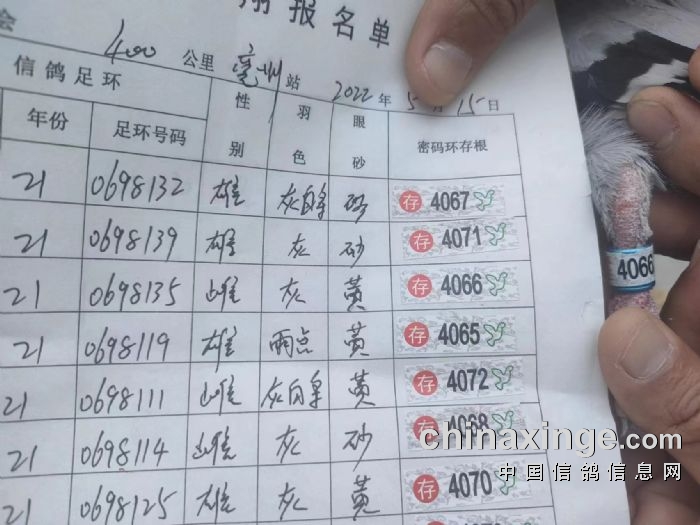 会 翔报名单
400 公里 亳州 站 2022 年 5 月 15 日
信鸽足环 性别 羽色 眼砂 密码环存根
年份 足环号码
21 0698132 雄 灰白条 砂 存 4067
21 0698139 雄 灰 砂 存 4071
21 0698135 雌 灰 黄 存 4066
21 0698119 雄 雨点 黄 存 4065
21 0698111 雌 灰白条 黄 存 4072
21 0698114 雌 灰 砂 存 4068
21 0698125 雄 灰 黄 存 4070
4066
chinaxinge.com
中国信鸽信息网